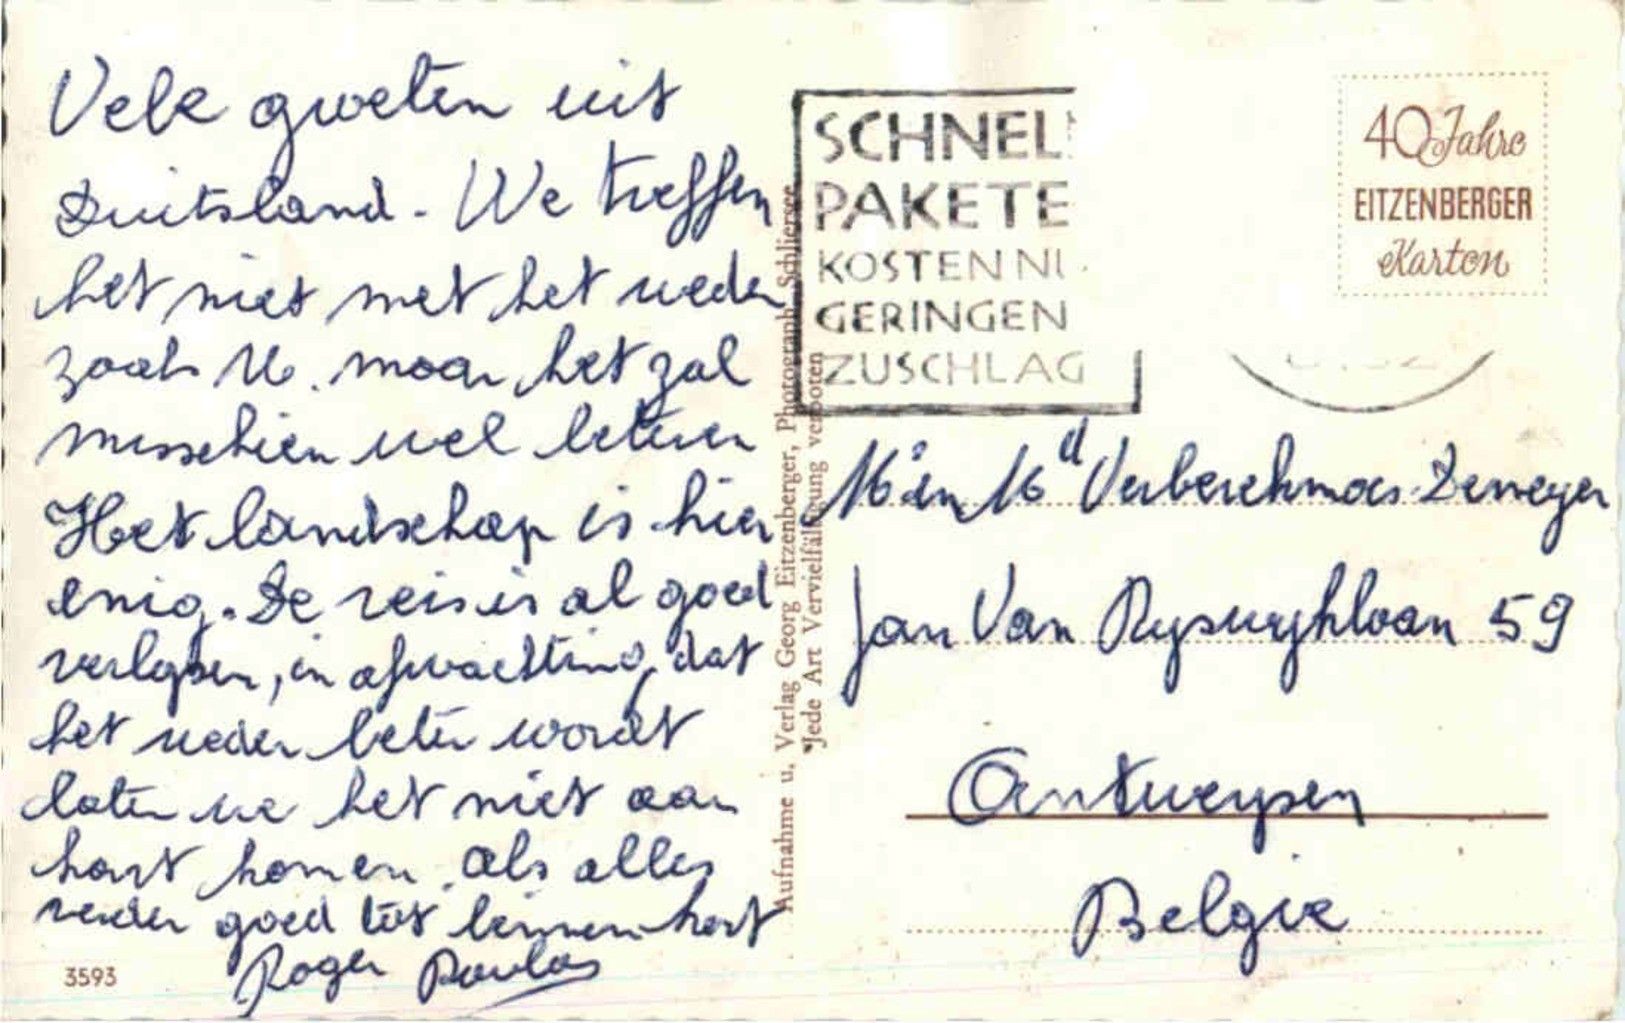 Vele groeten uit
Duitsland. We treffen
het niet met het weder
zoals U. maar het zal
misschien wel beteren
Het landschap is hier
enig. De reis is al goed
verlopen, in afwachting dat
het weder beter wordt
laten we het niet aan
hart komen. Als alles
verder goed tot binnenkort
Roger
3593
Aufnahme u. Verlag Georg Eitzenberger, Photograph, Schliersee
"Jede Art Vervielfältigung verboten
SCHNEL
PAKETE
KOSTEN NI
GERINGEN
ZUSCHLAG
40 Jahre
EITZENBERGER
Karten
M en Md Verberckmoes-Deweyer
Jan Van Ryswycklaan 59
Antwerpen
Belgie